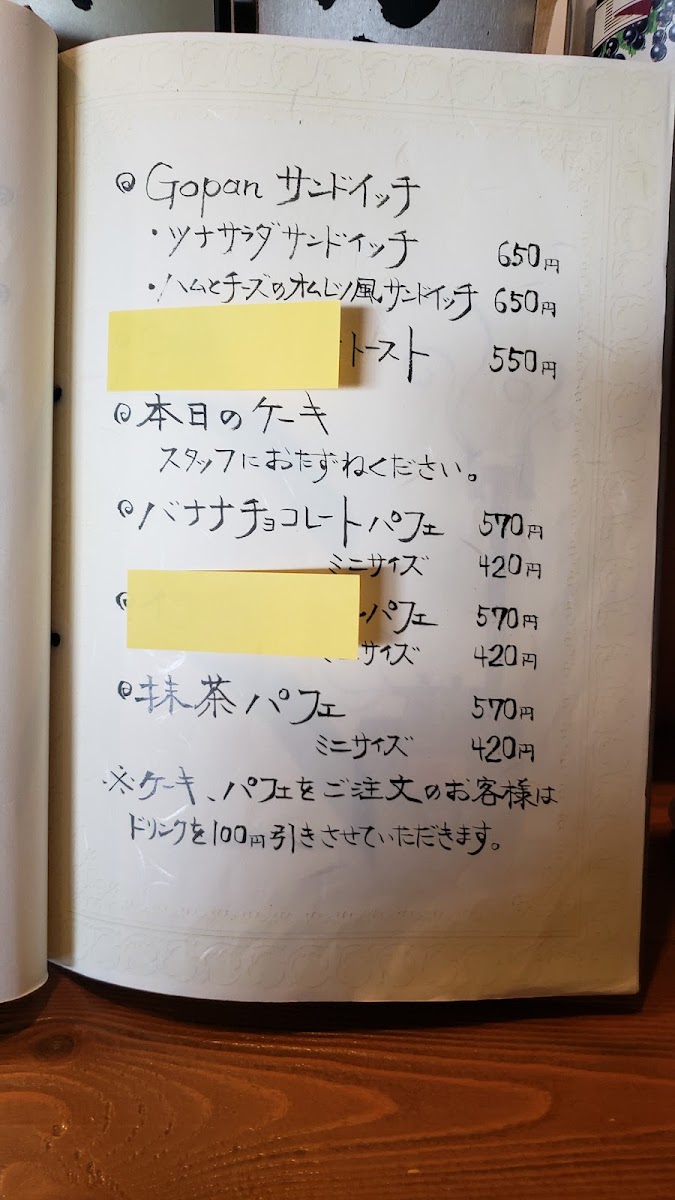 Gopan サンドイッチ
・ツナサラダサンドイッチ 650円
・ハムとチーズのオムレツ風サンドイッチ 650円
トースト 550円
本日のケーキ
スタッフにおたずねください。
バナナチョコレートパフェ 570円
ミニサイズ 420円
パフェ 570円
サイズ 420円
抹茶パフェ 570円
ミニサイズ 420円
※ケーキ、パフェをご注文のお客様は
ドリンクを100円引きさせていただきます。